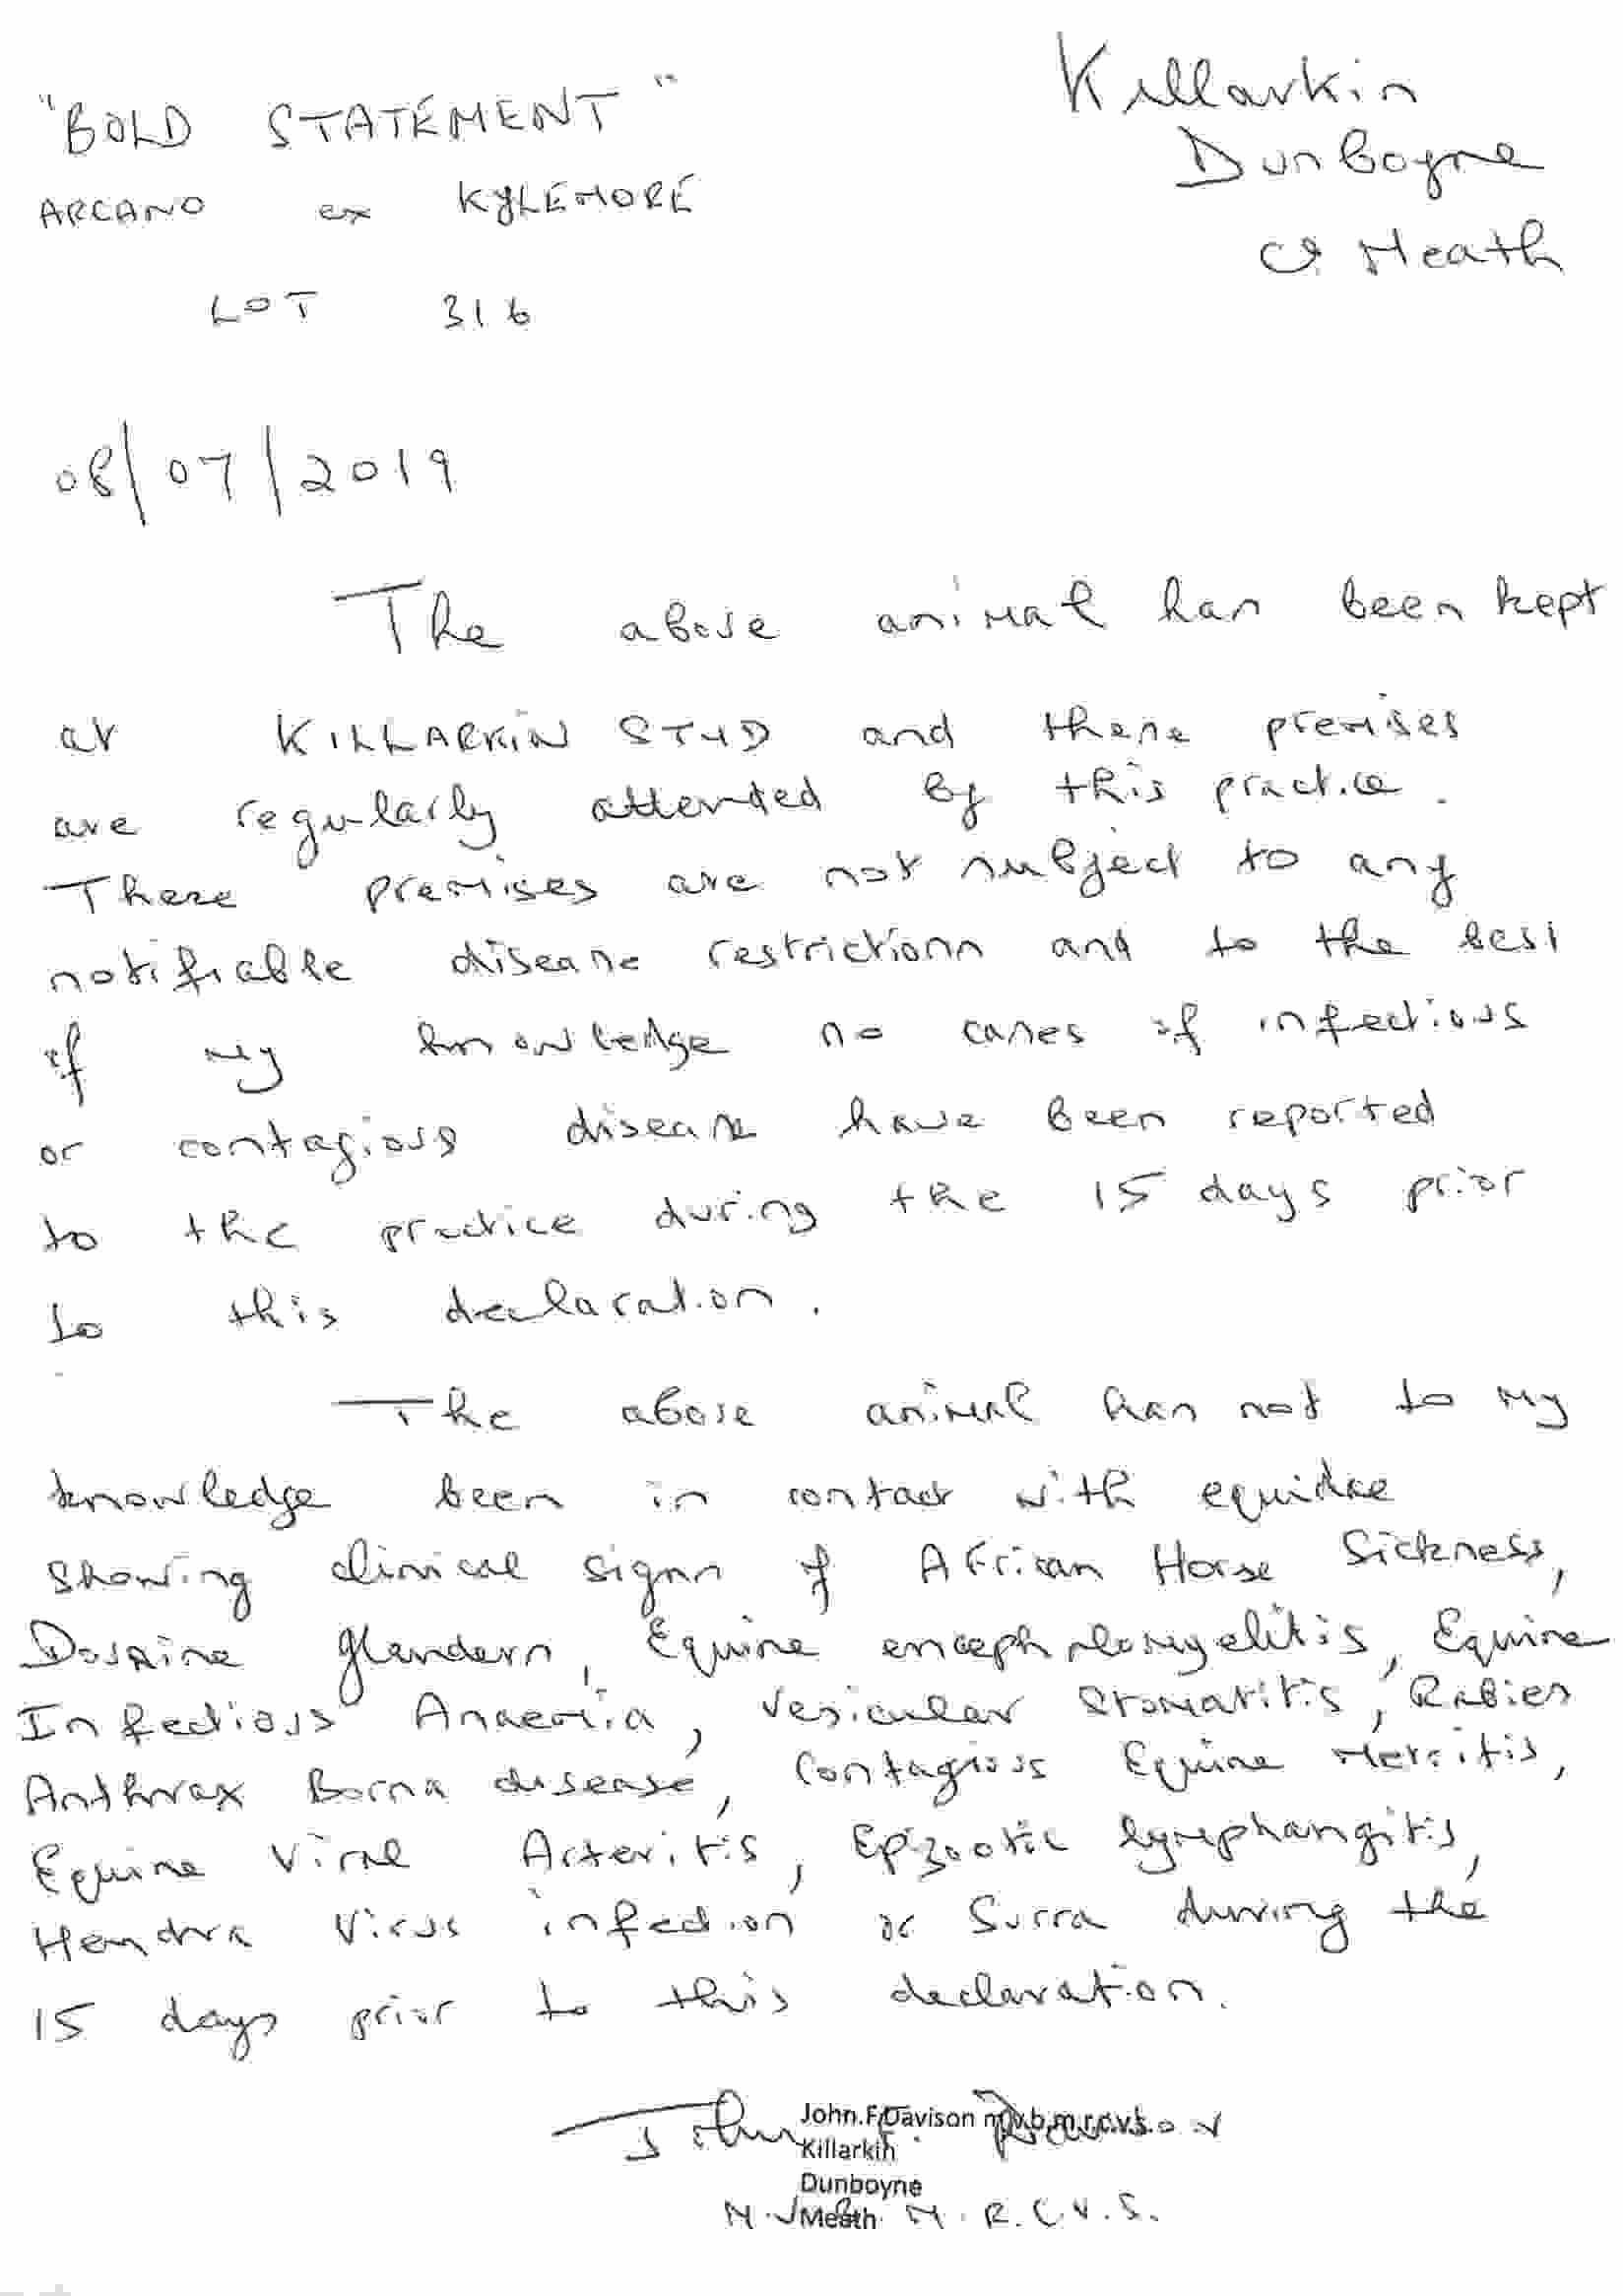 "BOLD STATEMENT"
ARCANO ex KYLEMORE
LOT 316
Killarkin
Dunboyne
Co Meath
08/07/2019
The above animal has been kept
at KILLARKIN STUD and these premises
are regularly attended by this practice.
These premises are not subject to any
notifiable disease restrictions and to the best
of my knowledge no cases of infectious
or contagious disease have been reported
to the practice during the 15 days prior
to this declaration.
The above animal has not to my
knowledge been in contact with equidae
showing clinical signs of African Horse Sickness,
Dourine glanders, Equine encephalomyelitis, Equine
Infectious Anaemia, Vesicular Stomatitis, Rabies
Anthrax Borna disease, Contagious Equine Metritis,
Equine Viral Arteritis, Epizootic lymphangitis,
Hendra Virus infection or Surra during the
15 days prior to this declaration.
John F. Davison
John.F.Davison m.v.b,m.r.c.v.s.
Killarkin
Dunboyne
Meath
M.V.B. M.R.C.V.S.